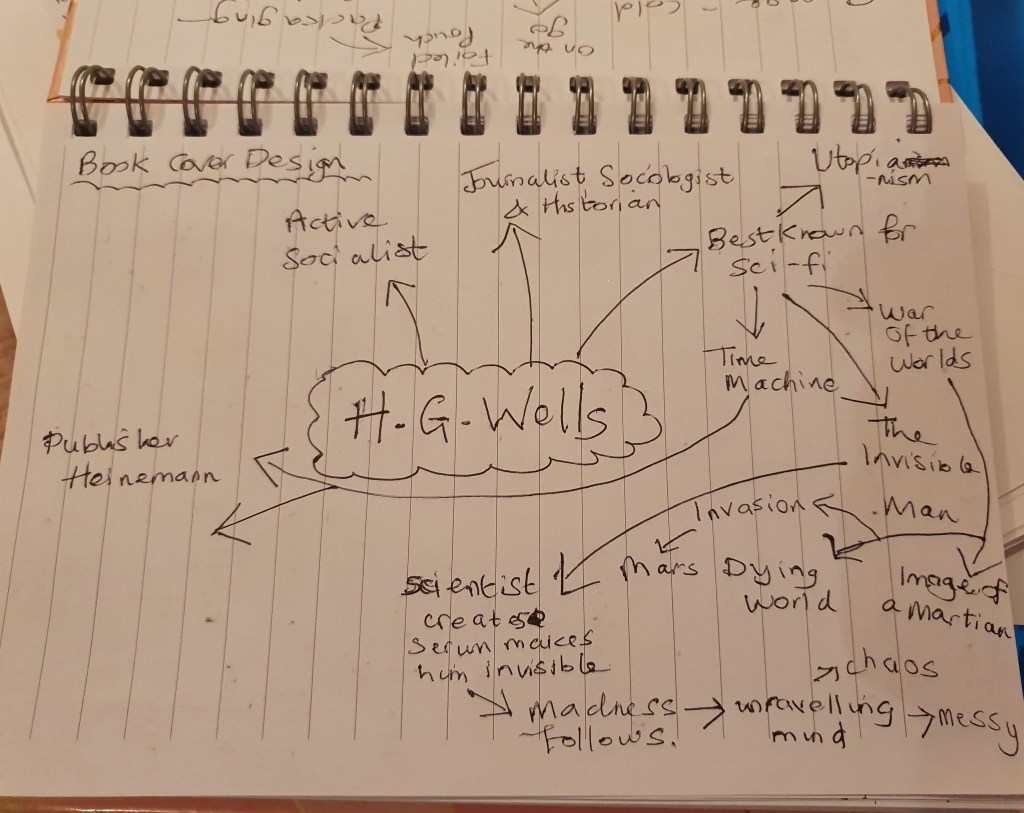 Cold
On the
go
Foiled
Pouch
Packaging
Book Cover Design
Active
Socialist
Journalist Socologist
& Hstorian
Best Known for
Sci-fi
Utopia
-nism
War
Of the
Worlds
Time
Machine
The
Invisible
Man
H.G.Wells
Publisher
Heinemann
Invasion
Mars
Dying
World
Image of
a Martian
Scientist
creates
serum makes
him invisible
Madness
follows.
unravelling
mind
chaos
messy